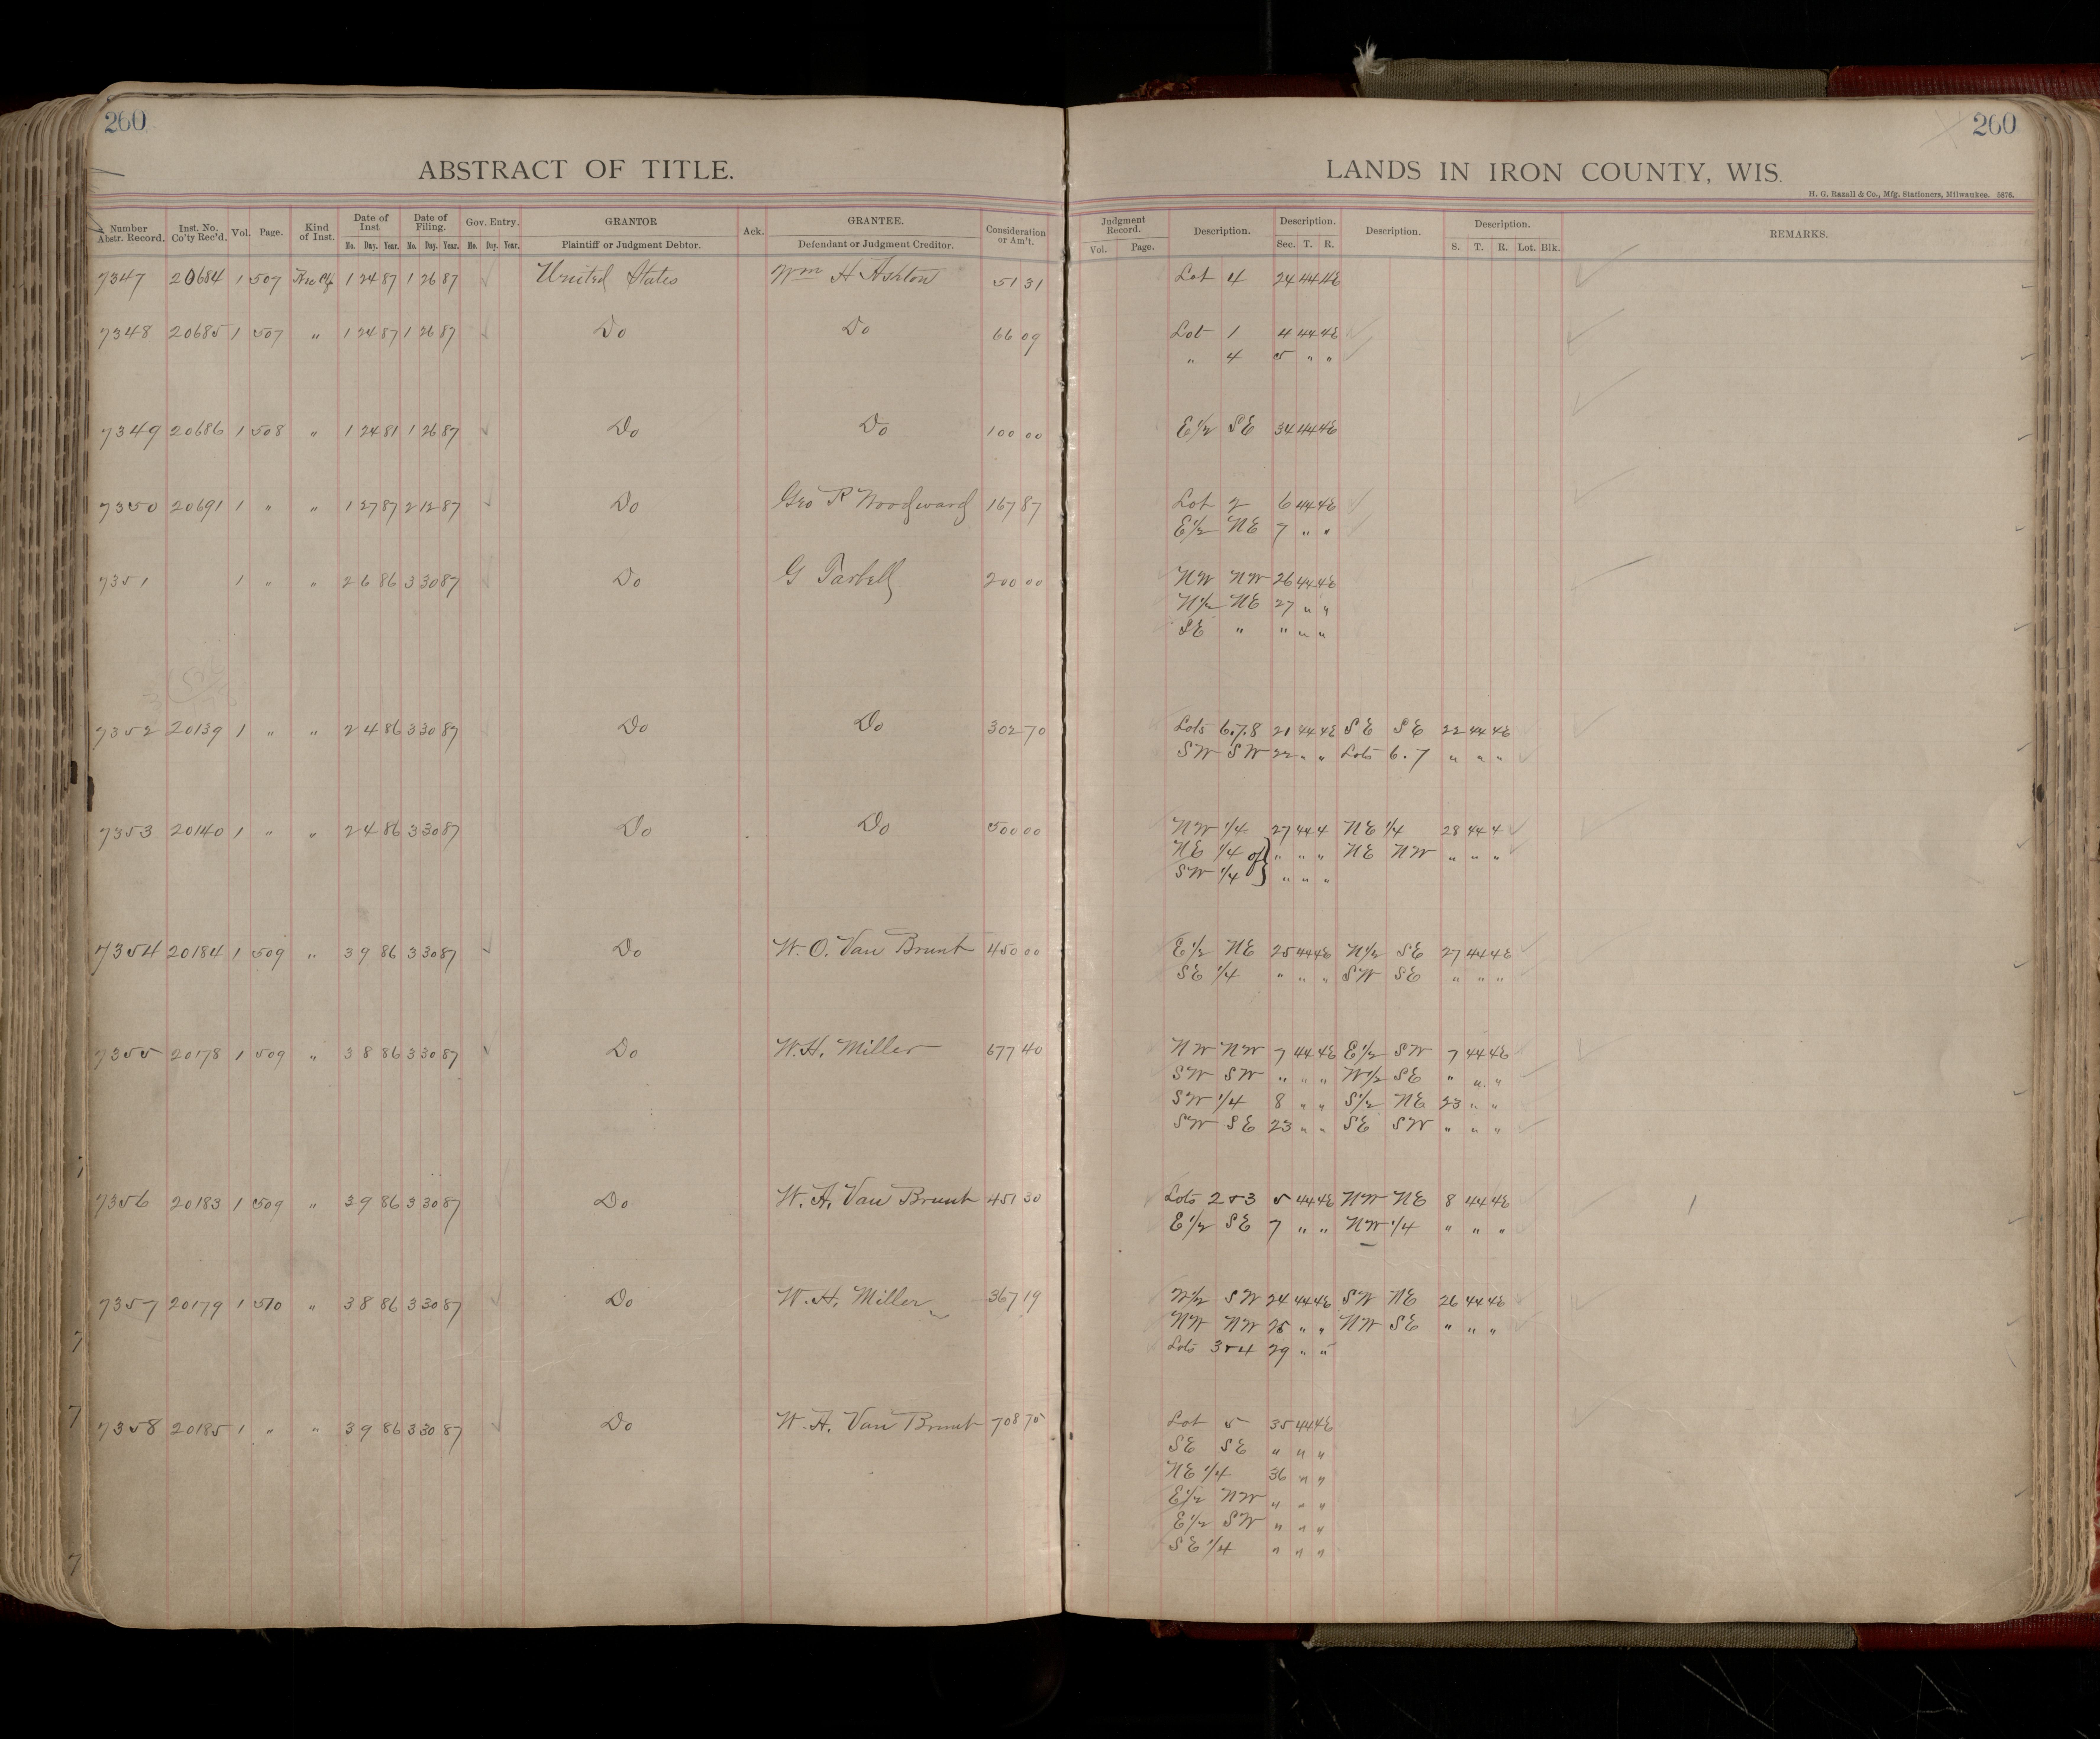 260
260
ABSTRACT OF TITLE.
LANDS IN IRON COUNTY, WIS.
H. G. Razall & Co., Mfg. Stationers, Milwaukee. 5876.
Number Abstr. Record. Inst. No. Co'ty Rec'd. Vol. Page. Kind of Inst. Date of Inst. Mo. Day. Year. Date of Filing. Mo. Day. Year. Gov. Entry. Mo. Day. Year. GRANTOR Plaintiff or Judgment Debtor. Ack. GRANTEE. Defendant or Judgment Creditor. Consideration or Am't. Judgment Record. Vol. Page. Description. Description. Sec. T. R. Description. Description. S. T. R. Lot. Blk. REMARKS.
7347 20684 1 507 1 24 87 1 26 87 United States Wm H Ashton 51 31 Lot 4 24 44 4E
7348 20685 1 507 " 1 24 87 1 26 87 Do Do 66 09 Lot 1 4 44 4E
" 4 5 " "
7349 20686 1 508 " 1 24 81 1 26 87 Do Do 100 00 E1/2 SE 34 44 4E
7350 20691 1 " " 1 27 87 2 12 87 Do Geo R Woodward 167 87 Lot 2 6 44 4E
E1/2 NE 7 " "
7351 1 " " 2 6 86 3 30 87 Do G Tarbell 200 00 NW NW 26 44 4E
N1/2 NE 27 " "
SE " " " "
7352 20139 1 " " 2 4 86 3 30 87 Do Do 302 70 Lots 6.7.8 21 44 4E SE SE 22 44 4E
SW SW 22 " " Lots 6.7 " " "
7353 20140 1 " " 2 4 86 3 30 87 Do Do 500 00 NW 1/4 27 44 4 NE 1/4 28 44 4
NE 1/4 of } " " " NE NW " " "
SW 1/4 } " " "
7354 20184 1 509 " 3 9 86 3 30 87 Do W. O. Van Brunt 450 00 E1/2 NE 25 44 4E N1/2 SE 27 44 4E
SE 1/4 " " " SW SE " " "
7355 20178 1 509 " 3 8 86 3 30 87 Do W. H. Miller 677 40 NW NW 7 44 4E E1/2 SW 7 44 4E
SW SW " " " W1/2 SE " " "
SW 1/4 8 " " S1/2 NE 23 " "
SW SE 23 " " SE SW " " "
7356 20183 1 509 " 3 9 86 3 30 87 Do W. A. Van Brunt 451 30 Lots 2 & 3 5 44 4E NW NE 8 44 4E
E1/2 SE 7 " " NW 1/4 " " "
7357 20179 1 510 " 3 8 86 3 30 87 Do W. H. Miller 367 19 W1/2 SW 24 44 4E SW NE 26 44 4E
NW NW 25 " " NW SE " " "
Lots 3 & 4 29 " "
7358 20185 1 " " 3 9 86 3 30 87 Do W. A. Van Brunt 708 75 Lot 5 35 44 4E
SE SE " " "
NE 1/4 36 " "
E1/2 NW " " "
E1/2 SW " " "
SE 1/4 " " "